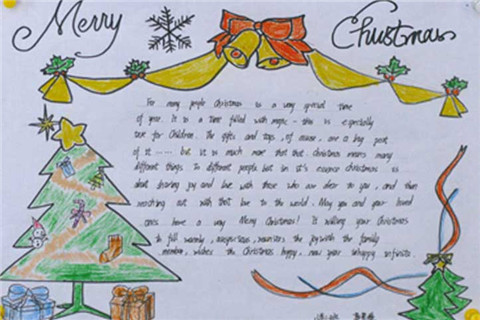 Merry Christmas
For many people Christmas is a very special time
of year. It is a time filled with magic - this is especially
true for Children. The gifts and toys, of course, are a big part
of it ...... but it is much more than that christmas means many
different things to different people but in it's essence christmas is
about sharing joy and love with those who are dear to you, and then
reaching out with that love to the world. May you and your loved
ones have a very Merry Christmas! It willing your Christmas
to fill warmly, auspicious, the joy with the family
member, wishes the Christmas happy, new year